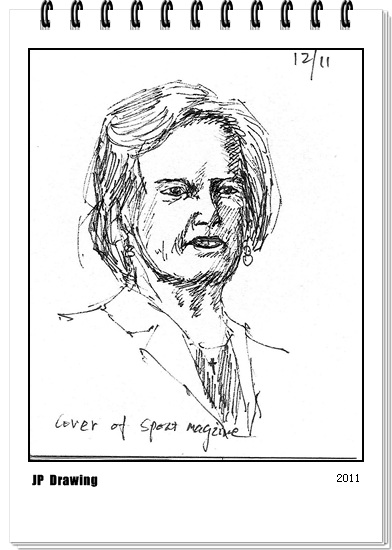 12/11
Cover of Sport magzine
JP Drawing
2011